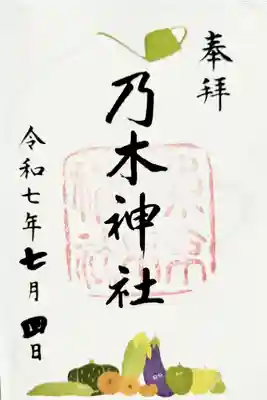 奉拝
乃木神社
令和七年七月四日